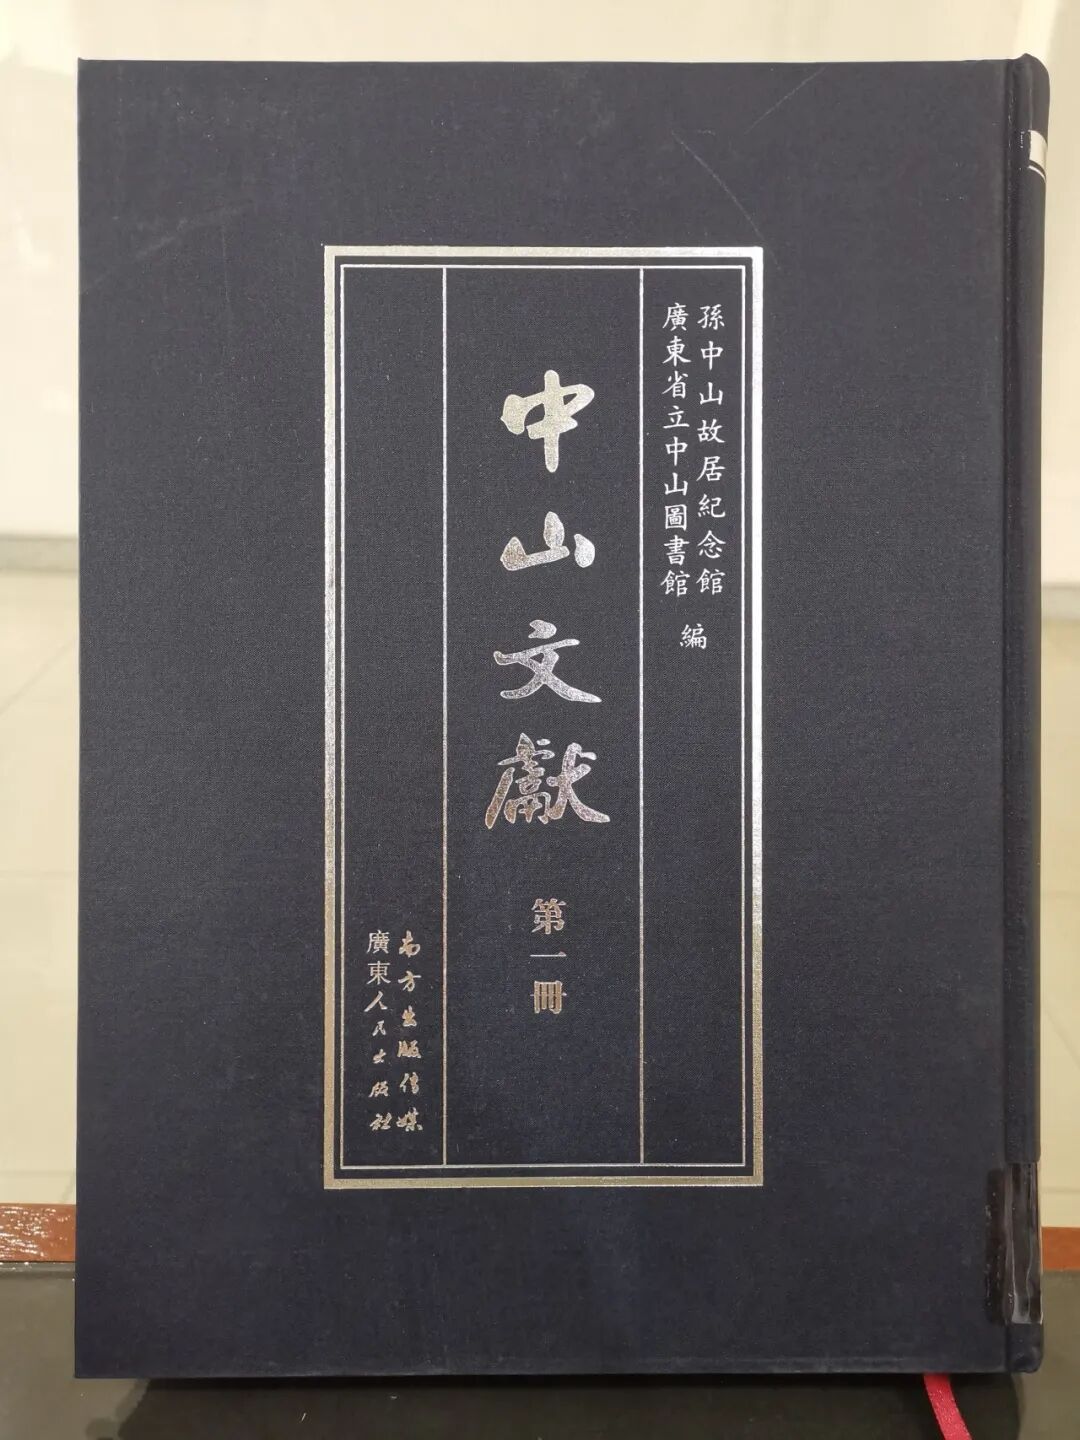 孫中山故居紀念館
廣東省立中山圖書館
編
中山文獻
第一冊
南方出版传媒
廣東人民出版社